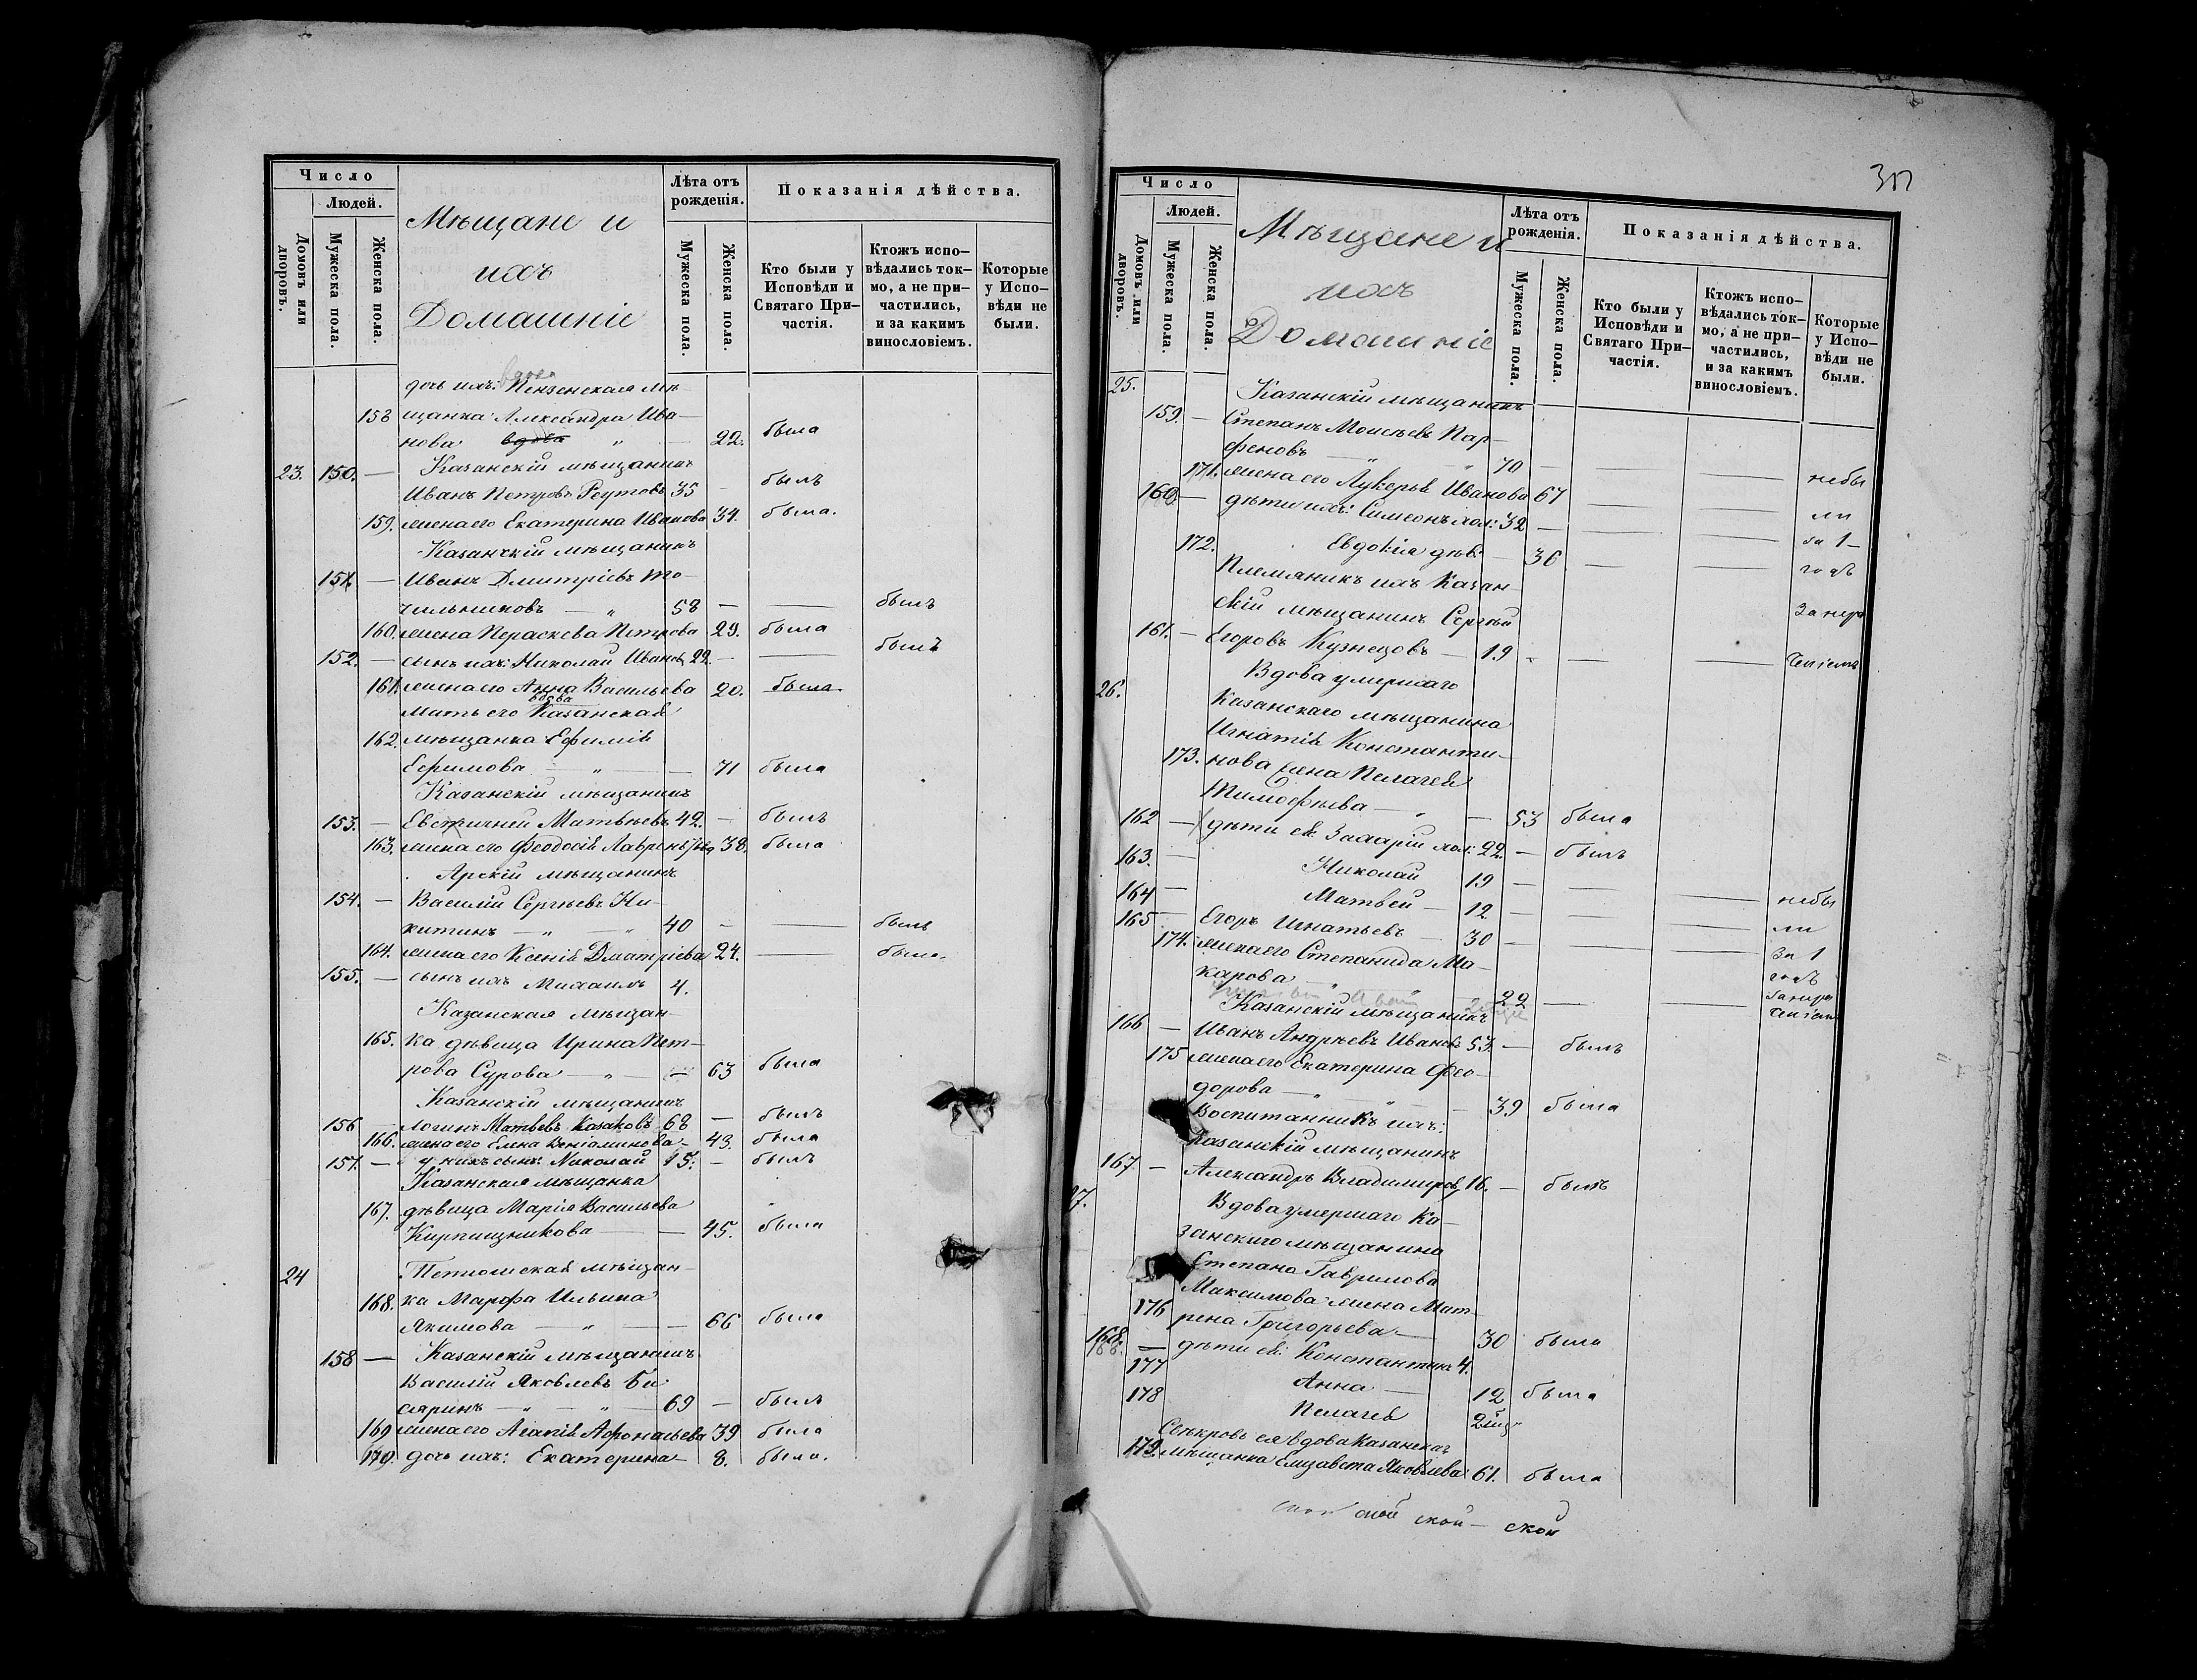 Число
Людей.
Домовъ или дворовъ.
Мужеска пола.
Женска пола.
Мѣщане и
ихъ
Домашніе
Лѣта отъ рожденія.
Мужеска пола.
Женска пола.
Показанія дѣйства.
Кто были у Исповѣди и Святаго Причастія.
Ктожъ исповѣдались токмо, а не причастились, и за какимъ винословіемъ.
Которые у Исповѣди не были.
вдова
дочь ихъ: Пензенская мѣ-
158 щанка Александра Ива-
нова вдова " — 22. была
23. 150. — Казанскій мѣщанинъ
Иванъ Петровъ Реутовъ 35 — былъ
159. жена его Екатерина Иванова 34. была.
Казанскій мѣщанинъ
151. — Иванъ Дмитріевъ То-
чильниковъ — " 58 — — былъ
160. жена Параскева Петрова 29. была
152. — сынъ ихъ: Николай Ивановъ 22. — — былъ
161. жена его Анна Васильева 20. была.
вдова
Мать его Казанская
162. мѣщанка Ефимія
Ефимова — " — — 71 была
Казанскій мѣщанинъ
153. — Евстигней Матвѣевъ 42. — былъ
163. жена его Феодосія Лаврентьева 38. была
Арскій мѣщанинъ
154. — Василій Сергѣевъ Ни-
китинъ — " — " 40 — — былъ
164. жена его Ксенія Дмитріева 24. — была.
155. — сынъ ихъ Михаилъ 4.
Казанская мѣщан-
165. ка дѣвица Ирина Пет-
рова Сурова — " — — 63 была
Казанскій мѣщанинъ
156 Логинъ Матвѣевъ Казаковъ 68 — былъ
166. жена его Елена Веніаминова — 43. была
157. — у нихъ сынъ: Николай 15. — былъ
Казанская мѣщанка
167. дѣвица Марія Васильева
Кирпищникова — — 45. была
24 Тетюшская мѣщан-
168. ка Марфа Ильина
Якимова — " — — 66 была
158 — Казанскій мѣщанинъ
Василій Яковлевъ Би-
сяринъ — " — " — 69 — былъ
169 жена его Агапія Афонасьева 39 была
170. дочь ихъ: Екатерина — 8. была.
Число
Людей.
Домовъ или дворовъ.
Мужеска пола.
Женска пола.
Мѣщане и
ихъ
Домашніе
Лѣта отъ рожденія.
Мужеска пола.
Женска пола.
Показанія дѣйства.
Кто были у Исповѣди и Святаго Причастія.
Ктожъ исповѣдались токмо, а не причастились, и за какимъ винословіемъ.
Которые у Исповѣди не были.
25. Казанскій мѣщанинъ
159. — Степанъ Моисѣевъ Пар-
феновъ — " — " 70 — — — небы
171. жена его Лукерья Иванова 67 — — ли
160. — дѣти ихъ: Симеонъ хол: 32 — — — за 1-
172. Евдокія дѣв: — 36 — — годъ
Племяникъ ихъ Казан-
скій мѣщанинъ Сергѣй За нера
161. — Егоровъ Кузнецовъ — 19 — — — ченіемъ
26. Вдова умершаго
Казанскаго мѣщанина
Игнатія Константи-
173. нова жена Пелагея
Тимофѣева — " — 53 была
162 — дѣти ея: Захарій хол: 22. — былъ
163. — Николай 19 — — — небы
164 — Матвей — 12 — — — ли
165 — Егоръ Игнатьевъ — 30 — — — за 1
174. жена его Степанида Ма- годъ
карова — " 22 — — за нера
Казанскій мѣщанинъ ченіем
166 — Иванъ Андреевъ Ивановъ 53. — былъ
175 жена его Екатерина Фео-
дорова — " — " — 39 была
Воспитанникъ ихъ:
Казанскій мѣщанинъ
167 — Александръ Владимировъ 16. — былъ
27. Вдова умершаго Ка-
занскаго мѣщанина
Степана Гаврилова
Максимова жена Мат-
176 рена Григорьева — 30 была
168. — дѣти ея: Константинъ 4.
177 Анна — 12 была
178 Пелагея
Свекровь ея вдова Казанская
179. мѣщанка Елизавета Яковлева 61. была
ской ской — ской